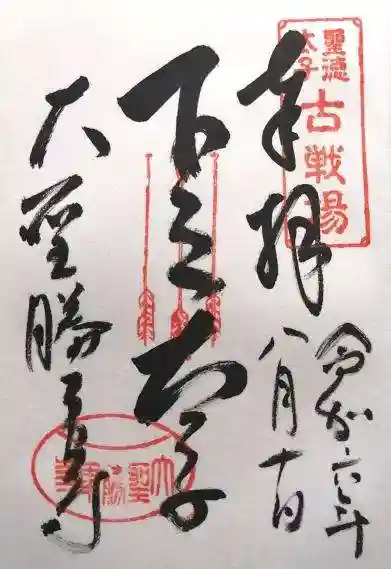 聖徳太子
古戦場
奉拝
令和六年
八月十日
下之太子
大聖勝軍寺
大聖勝軍寺